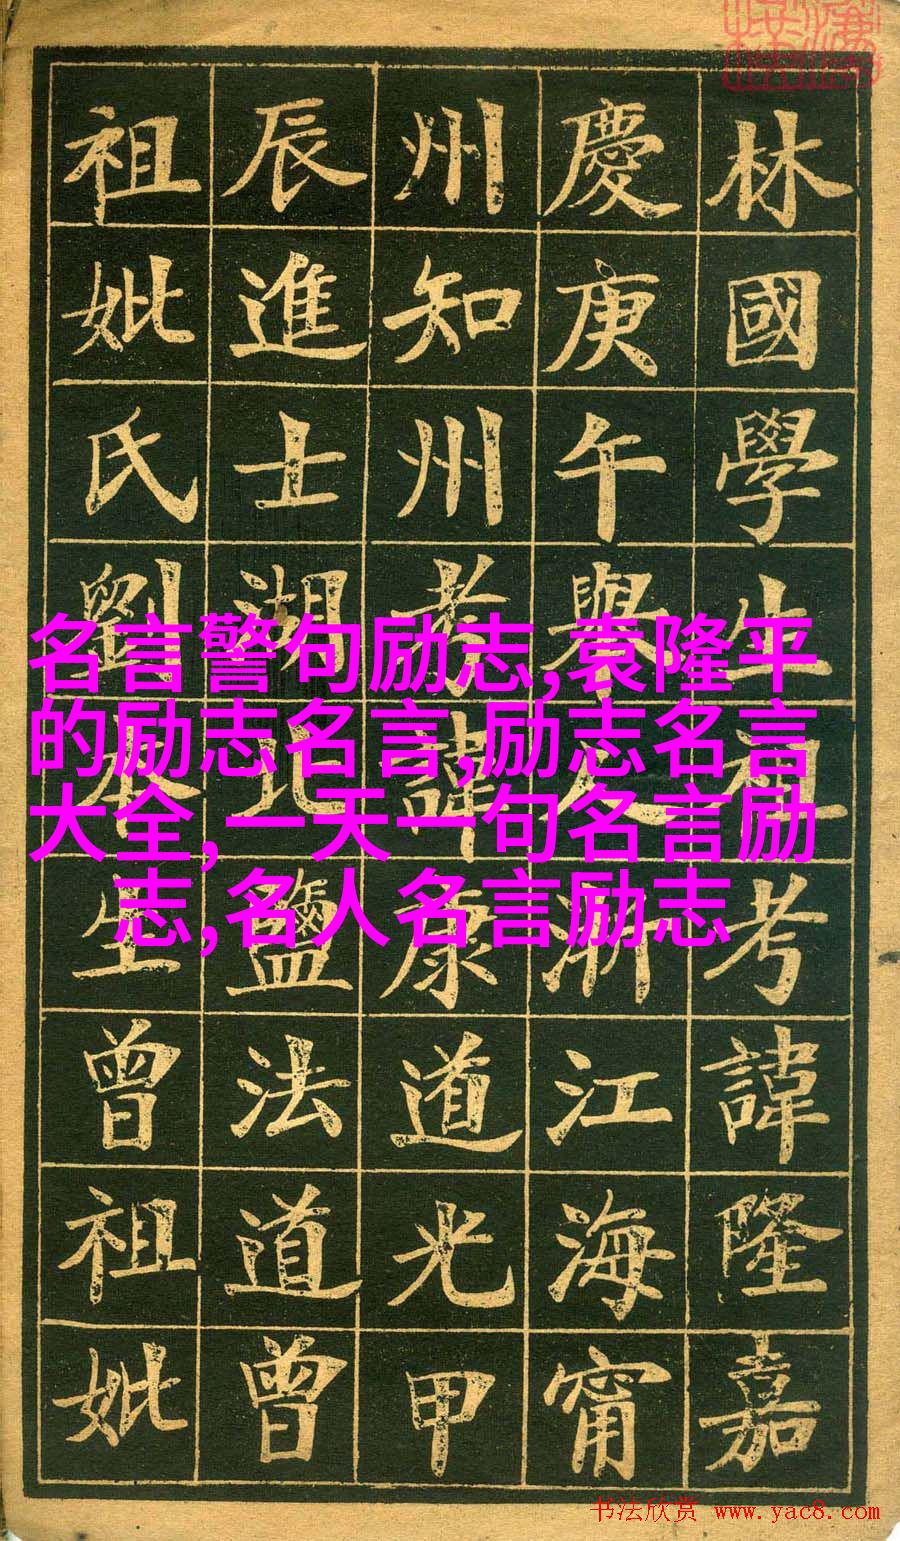 林國學生祖考諱隆嘉
慶庚午舉人浙江海甯
州知州考諱康道光甲
辰進士湖北鹽法道曾
祖妣氏劉本生曾祖妣
名言警句励志,袁隆平
的励志名言,励志名言
大全,一天一句名言励
志,名人名言励志
书法欣赏 www.yac8.com